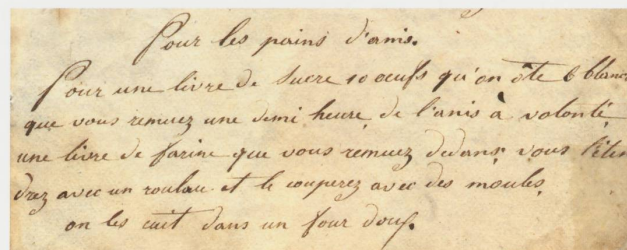 Pour les pains d'anis.
Pour une livre de sucre 10 oeufs qu'on ôte 6 blanc
que vous remuez une demi heure, de l'anis à volonté,
une livre de farine que vous remuez dedans, vous l'éten
drez avec un roulau et le couperez avec des moules,
on les cuit dans un four douf.